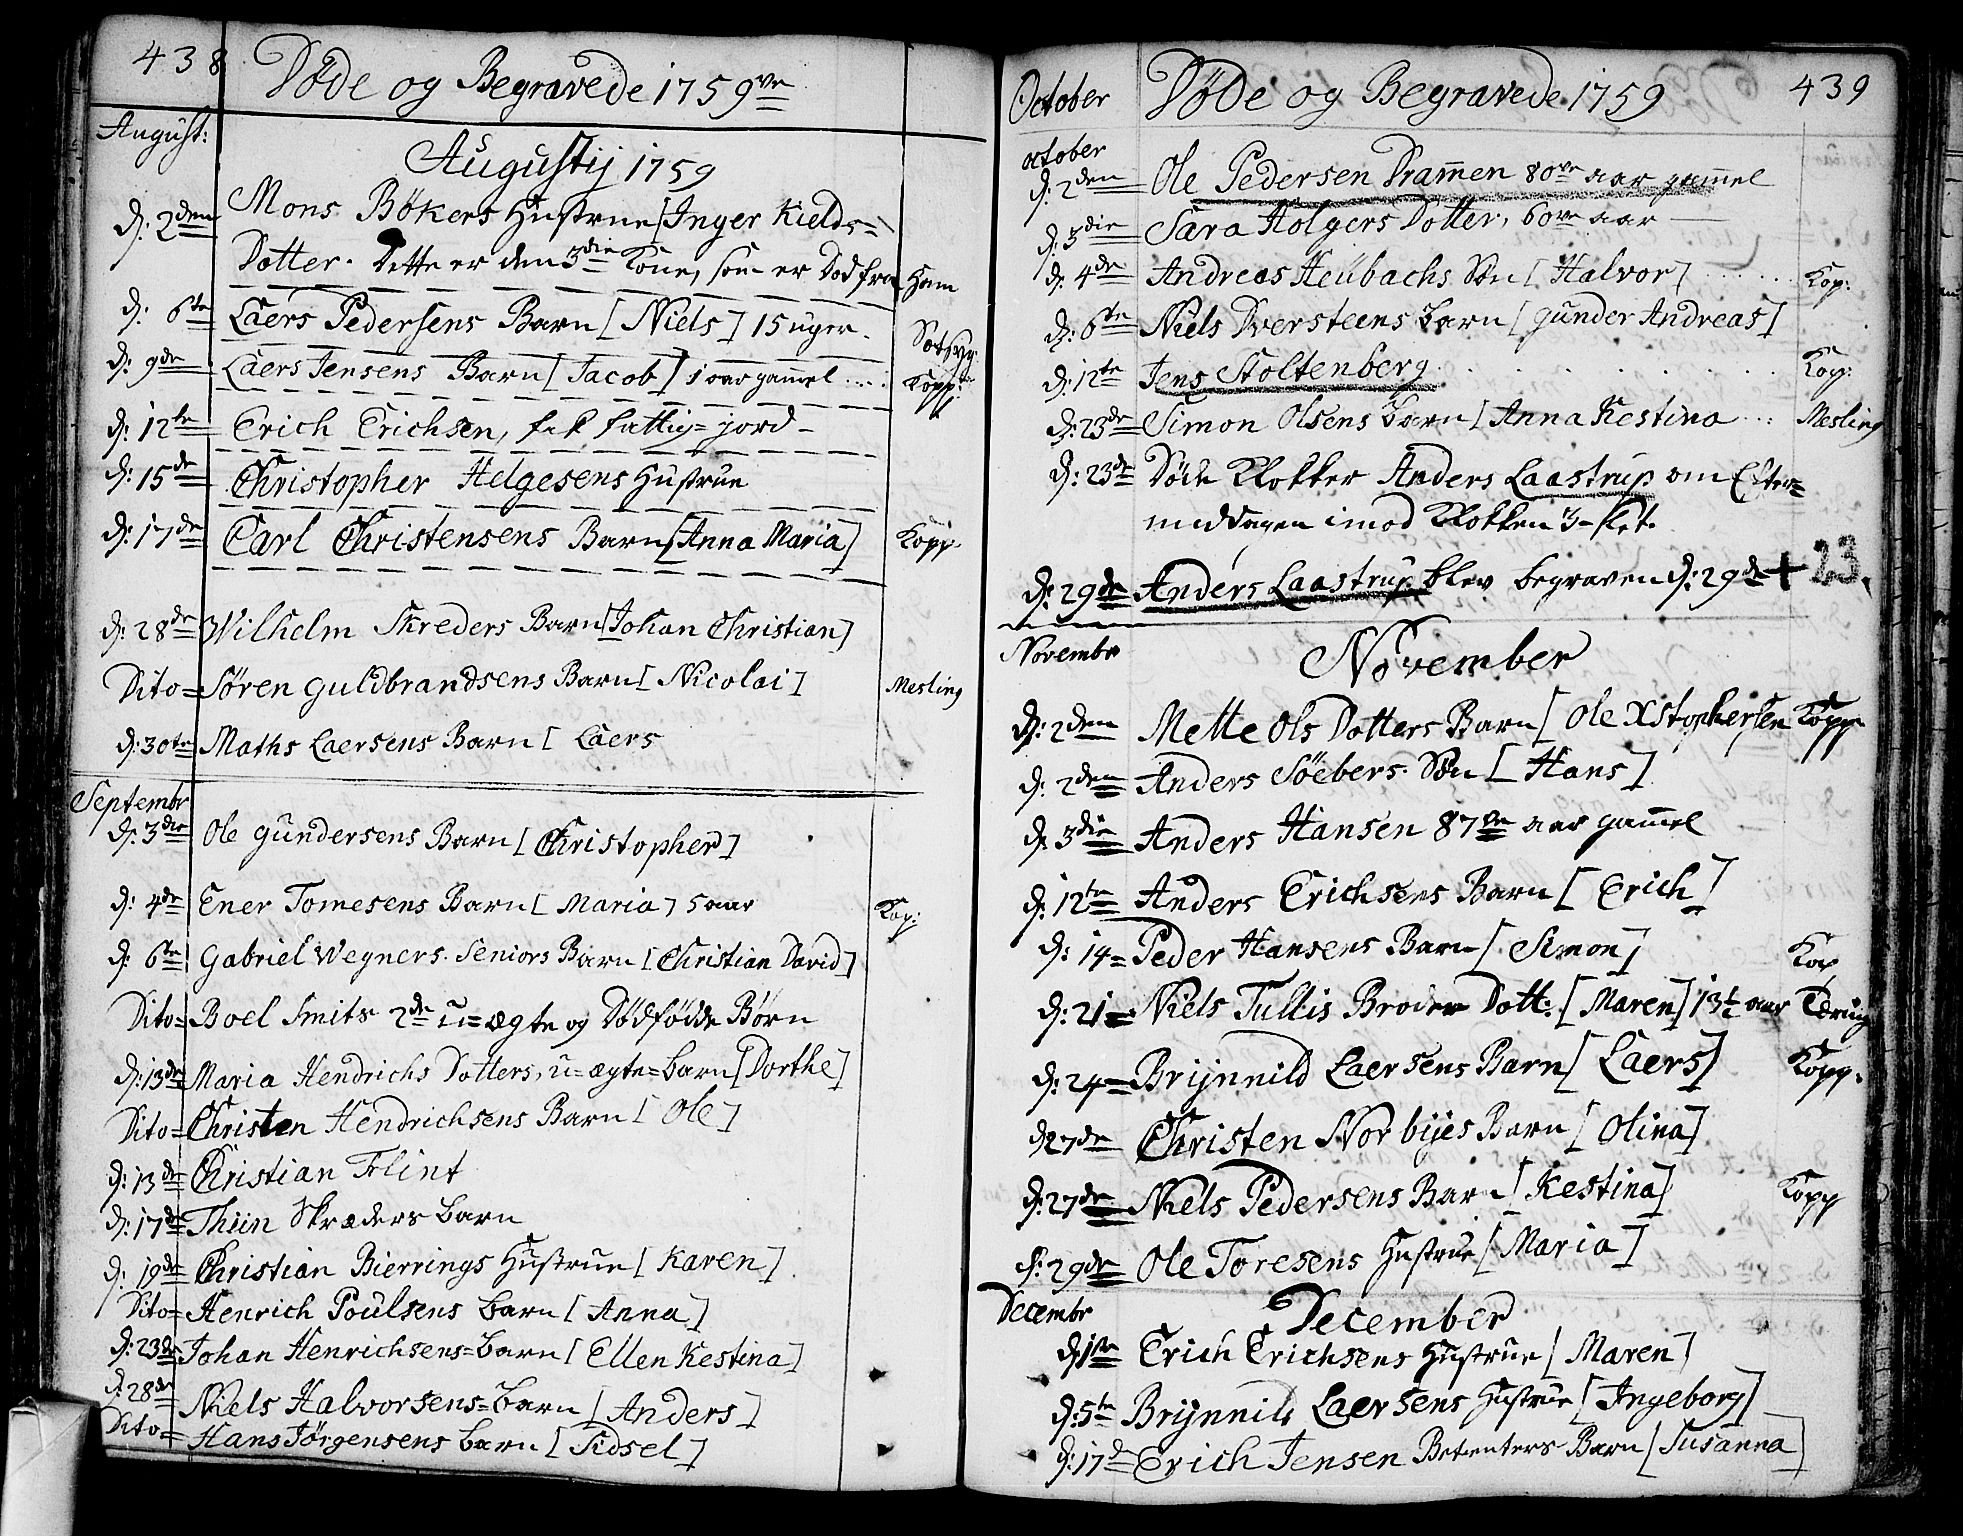 438
Døde og Begravede 1759ve
August:
Augustij 1759
d: 2den Mons Bøkers Hustrue [Inger Kields=
Dotter. Dette er den 3die Kone, som er Død fra Ham
d: 6te Laers Pedersens Barn [Niels] 15 uger.
d: 9de Laers Jensens Barn [Jacob] 1 aar gamel .... Kopp:
d: 12te Erich Erichsen, fik fattig=jord
d: 15de Christopher Helgesens Hustrue
d: 17de Carl Christensens Barn [Anna Maria] Kopp.
d: 28de Wilhelm Skreders Barn [Johan Christian]
Dito= Søren Guldbrandsens Barn [Nicolai] Mesling
d: 30te Maths Laersens Barn [Laers
Septembr
d: 3die Ole Gundersens Barn [Christopher]
d: 4de Ener Tomesens Barn [Maria] 5 aar Kop:
d: 6te Gabriel Wegners Seniors Barn [Christian David]
Dito= Boel Smits 2de U=ægte og Dødfødde Børn
d: 13de Maria Hendrichs Dotters, u=ægte=Barn [Dorthe]
Dito= Christen Hendrichsens Barn [Ole]
d: 13de Christian Flint
d: 17de Thiin Skræders Barn
d: 19de Christian Bierrings Hustrue [Karen]
Dito= Henrich Poulsens Barn [Anna]
d: 23de Johan Henrichsens=Barn [Ellen Kestina]
d: 28de Niels Halvorsens=Barn [Anders]
Dito= Hans Jørgensens Barn [Sidsel]
October Døde og Begravede 1759 439
october
d: 2den Ole Pedersen Dramen 80ve aar gamel
d: 3die Sara Holgers Dotter, 60ve aar
d: 4de Andreas Heubachs Søn [Halvor] Kop:
d: 6te Niels Dversteens Barn [Gunder Andreas]
d: 12te Jens Stoltenberg Kop:
d: 23de Simon Olsens Barn [Anna Kestina Mesling
d: 23de Døde Klokker Anders Laastrup om Efter=
middagen imod Klokken 3-slet.
d: 29de Anders Laastrup blev begraven d: 29de + 23.
Novembr
November
d: 2den Mette Ols Dotters Barn [Ole Xstophersen Kopp
d: 2den Anders Søebers Søn [Hans]
d: 3die Anders Hansen 87ve aar gamel
d: 12te Anders Erichsens Barn [Erich]
d: 14= Peder Hansens Barn [Simon] Kop
d: 21= Niels Tullis Broder Dott: [Maren] 13½ aar
d: 24= Brijnnild Laersens Barn [Laers] Kopp.
d 27de Christen Norbijes Barn [Olina]
d: 27de Niels Pedersens Barn [Kestina] Kopp
d: 29de Ole Toresens Hustrue [Maria]
Decembr
December
d 1ste Erich Erichsens Hustrue [Maren]
d: 5te Brijnnild Laersens Hustrue [Ingeborg]
d: 17de Erich Jensen Betienters Barn [Susanna]